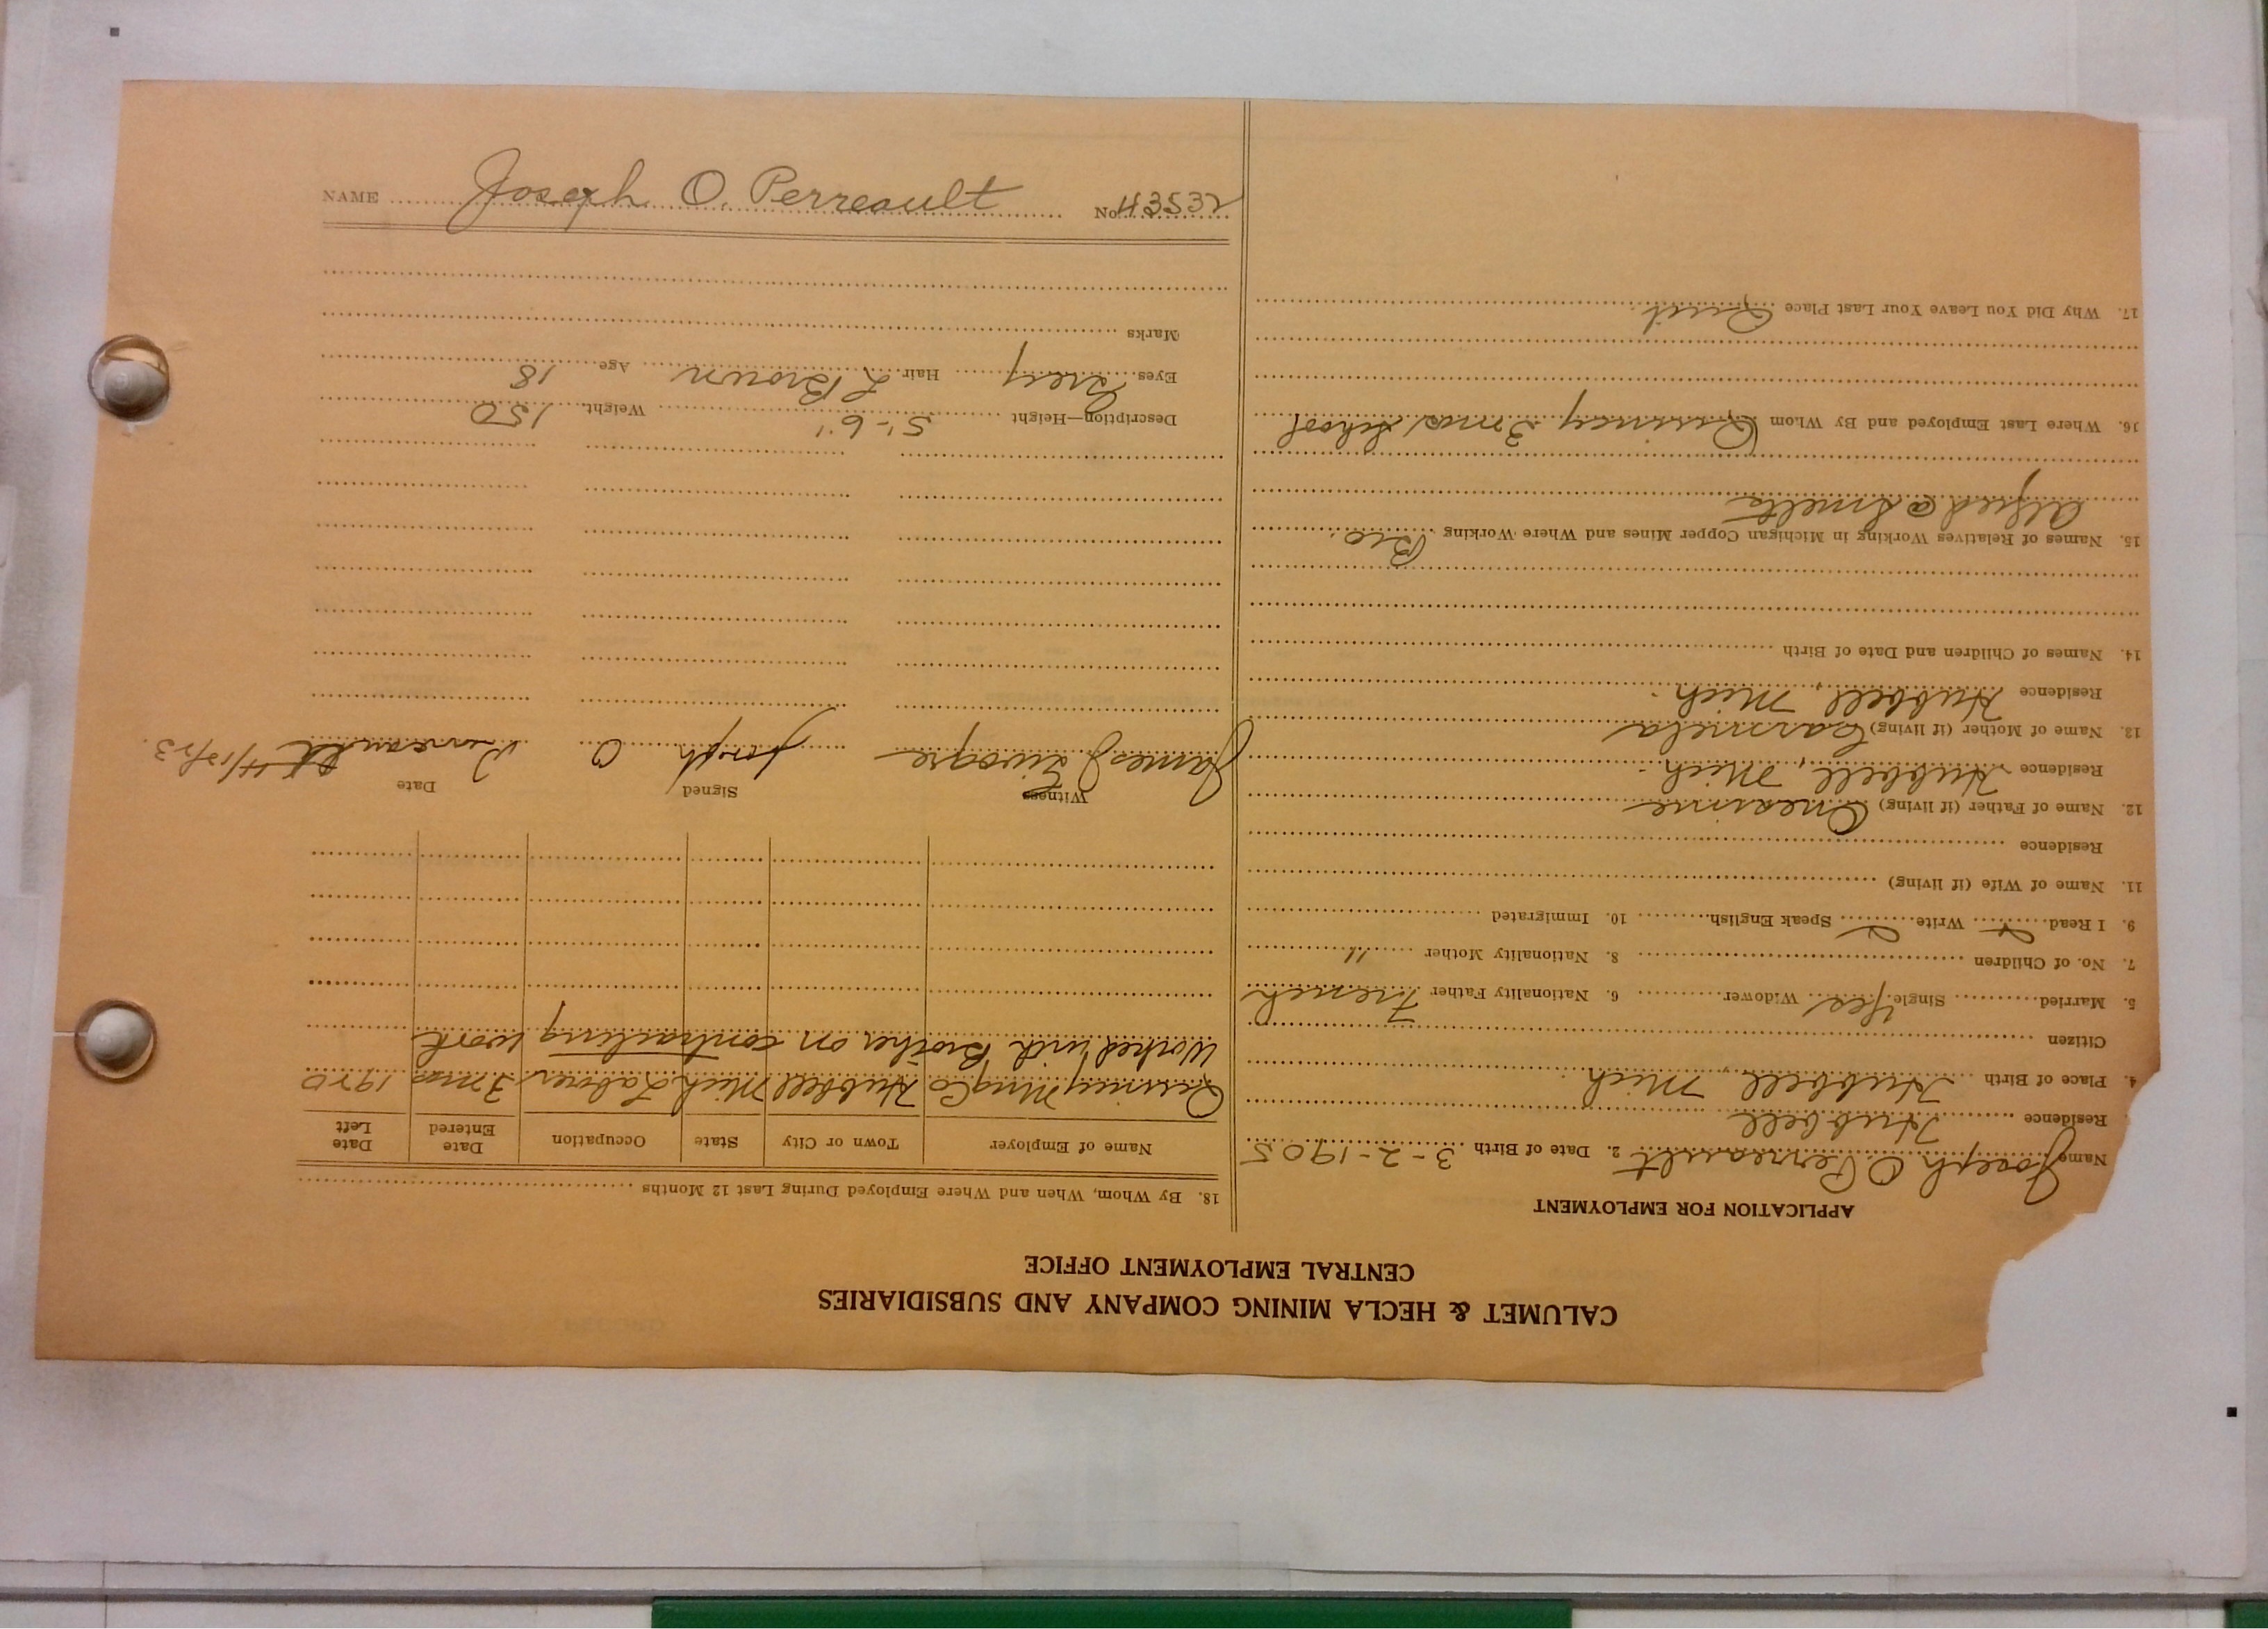 CALUMET & HECLA MINING COMPANY AND SUBSIDIARIES
CENTRAL EMPLOYMENT OFFICE
APPLICATION FOR EMPLOYMENT
Name Joseph O. Perreault 2. Date of Birth 3-2-1905
Residence Hubbell
4. Place of Birth Hubbell, Mich.
Citizen
5. Married Single Yes Widower 6. Nationality Father French
7. No. of Children 8. Nationality Mother "
9. I Read Write Speak English 10. Immigrated
11. Name of Wife (if living)
Residence
12. Name of Father (if living) Onesime
Residence Hubbell, Mich.
13. Name of Mother (if living) Carmela
Residence Hubbell, Mich.
14. Names of Children and Date of Birth
15. Names of Relatives Working in Michigan Copper Mines and Where Working Bro.
Alfred @ Smelts
16. Where Last Employed and By Whom Quincy 3 mos School
17. Why Did You Leave Your Last Place Quit.
18. By Whom, When and Where Employed During Last 12 Months
Name of Employer Town or City State Occupation Date Entered Date Left
Quincy Mng Co Hubbell Mich Laborer 3 mos 1920
Worked with Brother on contracting work
Witness Signed Date
James J Joseph O Perreault 4/18/23.
Description—Height 5'-6" Weight 150
Eyes Grey Hair L Brown Age 18
Marks
NAME Joseph O. Perreault No. 43532